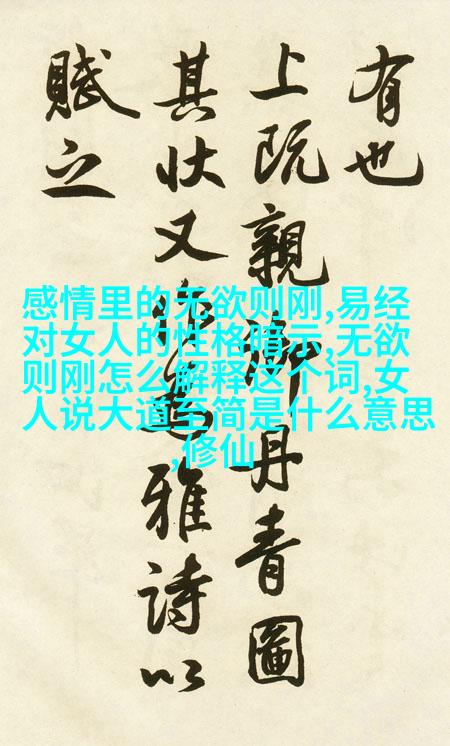 有也
上既親御丹青圖
其状又作為雅詩以
賦之
感情里的无欲则刚,易经
对女人的性格暗示,无欲
则刚怎么解释这个词,女
人说大道至简是什么意思
,修仙